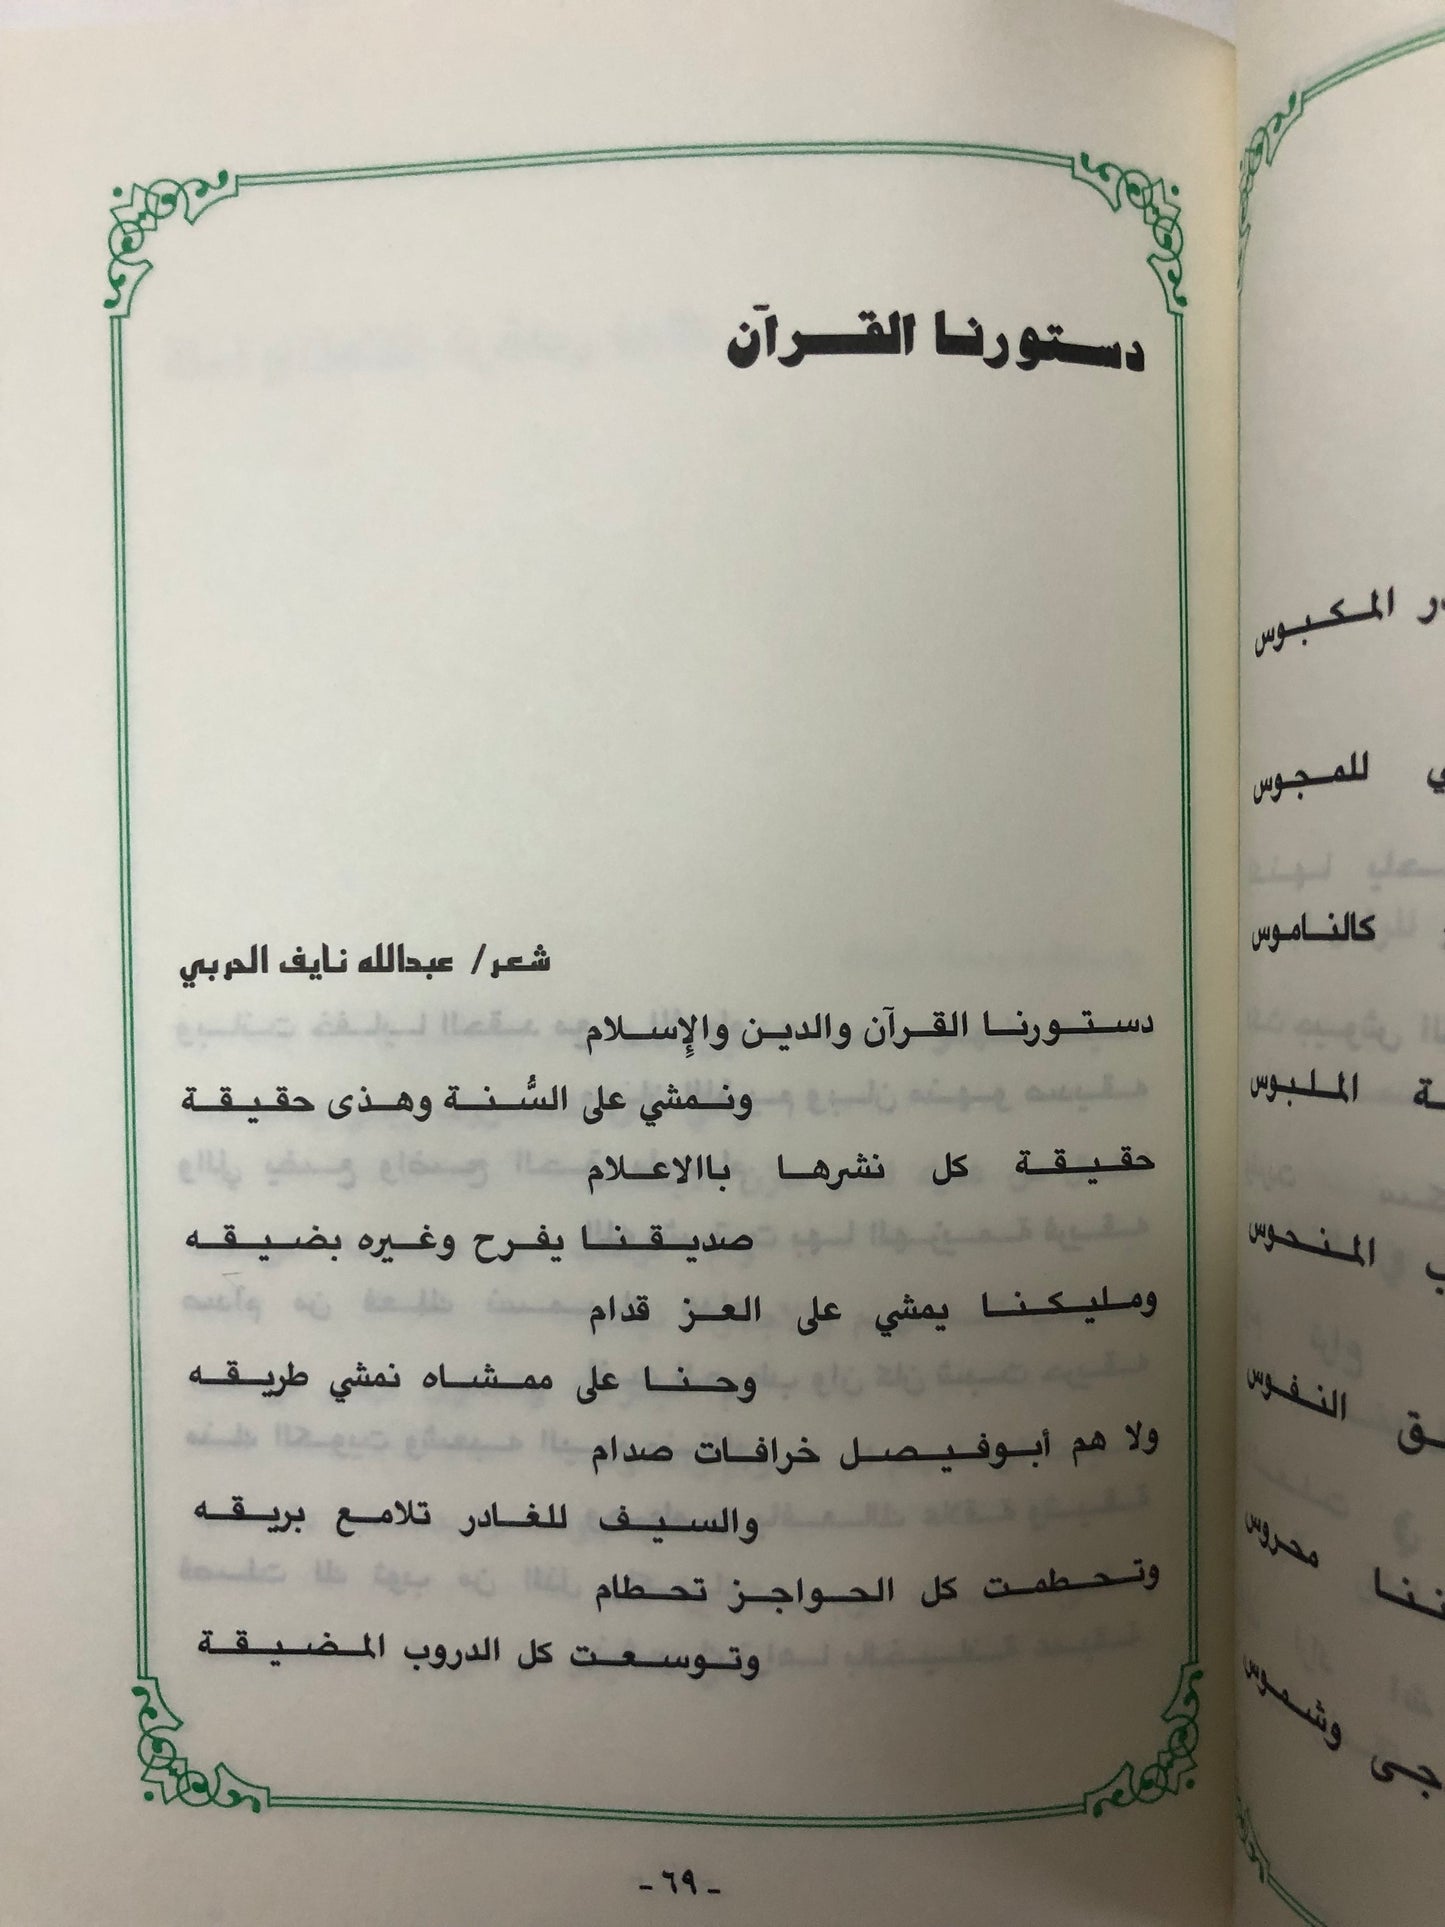 دستورنا القرآن
شعر/ عبدالله نايف الحربي
دستورنا القرآن والدين والإسلام
ونمشي على السُّنة وهذى حقيقة
حقيقة كل نشرها باالاعلام
صديقنا يفرح وغيره بضيقه
ومليكنا يمشي على العز قدام
وحنا على ممشاه نمشي طريقه
ولا هم أبوفيصل خرافات صدام
والسيف للغادر تلامع بريقه
وتحطمت كل الحواجز تحطام
وتوسعت كل الدروب المضيقة
- ٦٩ -
المكبوس
للمجوس
كالناموس
الملبوس
المنحوس
النفوس
محروس
وشموس